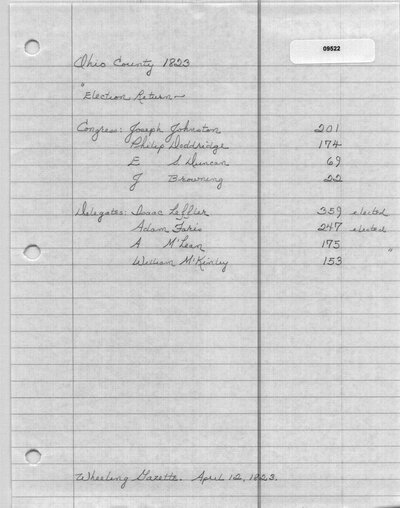 09522
Ohio County 1823
"Election Return—
Congress: Joseph Johnston 201
Philip Doddridge 174
E S. Duncan 69
J Browning 22
Delegates: Isaac Leffler 359 elected
Adam Faris 247 elected
A McLean 175 "
William McKinley 153
Wheeling Gazette. April 12, 1823.